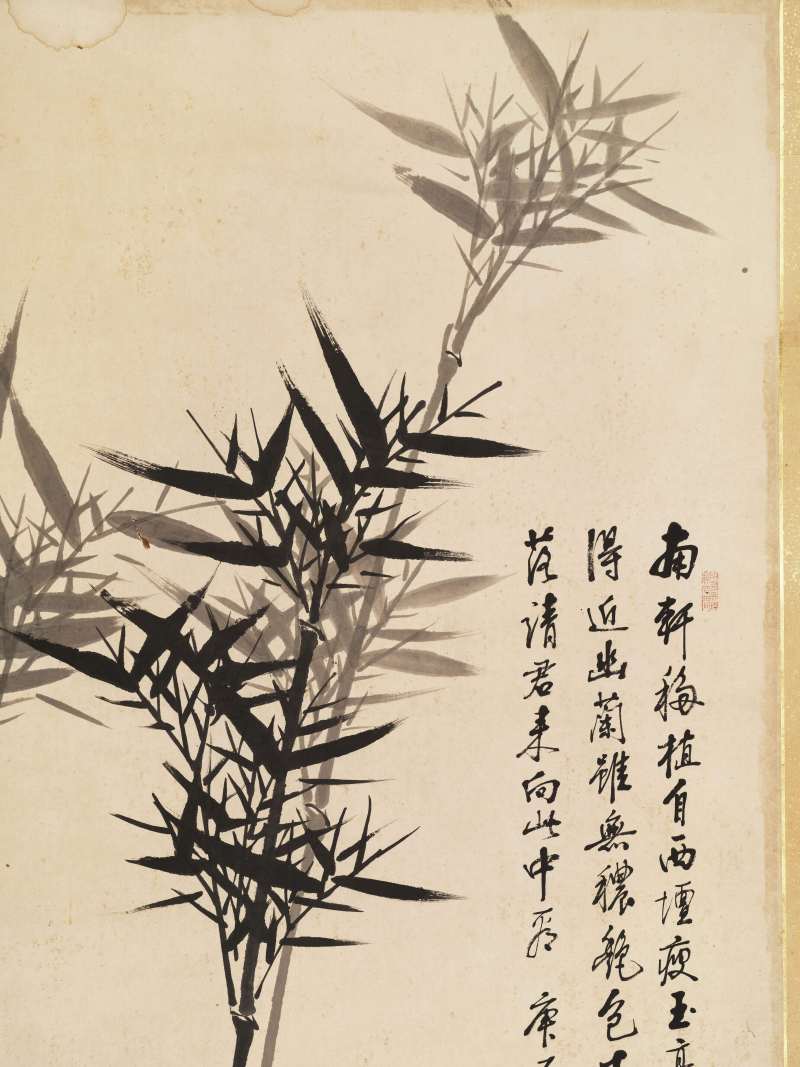 南軒移植自西壇瘦玉
得近幽蘭雖無穠艷色
落請君来向此中看 庚